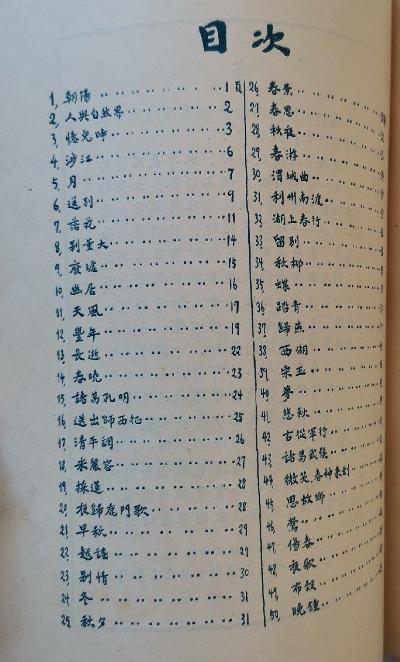 目次
1. 朝陽 1頁
2. 人與自然界 2
3. 憶兒時 3
4. 涉江 6
5. 月 7
6. 送別 9
7. 落花 11
8. 別董大 14
9. 廢墟 15
10. 幽居 16
11. 天風 17
12. 豐年 19
13. 長逝 22
14. 春曉 23
15. 諸葛孔明 24
16. 送出師西征 25
17. 清平調 26
18. 采薇容 27
19. 採蓮 28
20. 夜歸鹿門歌 28
21. 早秋 29
22. 越謠 29
23. 別情 30
24. 冬 31
25. 秋夕 31
26. 春景
27. 春思
28. 秋夜
29. 春游
30. 渭城曲
31. 利州南渡
32. 湖上春行
33. 留別
34. 秋柳
35. 蝶
36. 踏青
37. 歸燕
38. 西湖
39. 宗玉
40. 夢
41. 悲秋
42. 古從軍行
43. 諸葛武侯
44. 微笑春神來到
45. 思故鄉
46. 鶯
47. 傷春
48. 夜歌
49. 布穀
50. 晚鐘